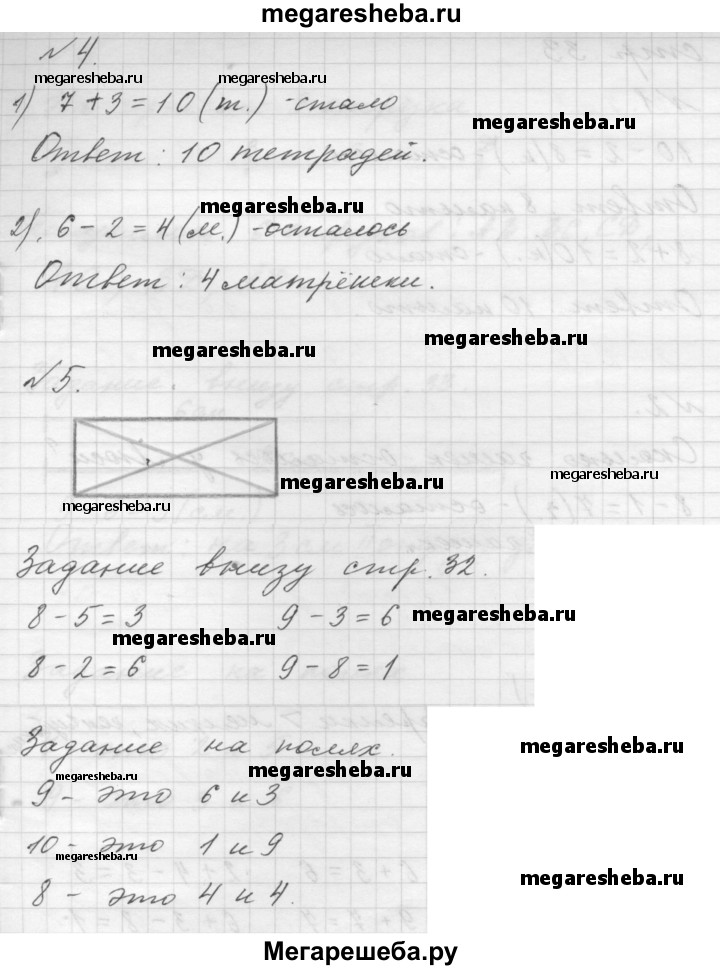 megaresheba.ru
№4.
megaresheba.ru megaresheba.ru
1) 7+3=10 (т.) -стало
megaresheba.ru
Ответ: 10 тетрадей.
megaresheba.ru
2). 6-2=4 (м.) -осталось
Ответ: 4 матрёшки.
megaresheba.ru
megaresheba.ru
№5.
megaresheba.ru
megaresheba.ru
megaresheba.ru
Задание внизу стр. 32.
8-5=3 9-3=6
megaresheba.ru
megaresheba.ru
8-2=6 9-8=1
Задание на полях.
megaresheba.ru
megaresheba.ru
megaresheba.ru
9 - это 6 и 3
10 - это 1 и 9
megaresheba.ru
megaresheba.ru
8 - это 4 и 4.
Мегарешеба.ру